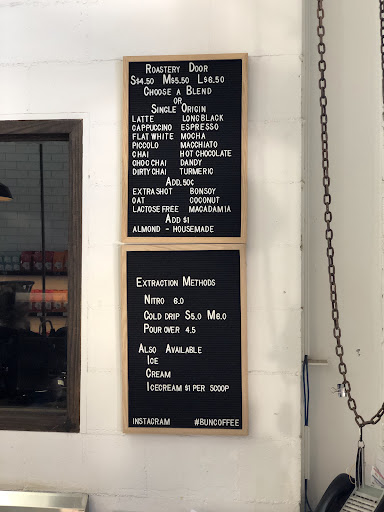 Roastery Door
S$4.50 M$5.50 L$6.50
Choose a Blend
or
Single Origin
LATTE LONG BLACK
CAPPUCCINO ESPRESSO
FLAT WHITE MOCHA
PICCOLO MACCHIATO
CHAI HOT CHOCOLATE
CHOC CHAI DANDY
DIRTY CHAI TURMERIC
ADD .50¢
EXTRA SHOT BONSOY
OAT COCONUT
LACTOSE FREE MACADAMIA
ADD $1
ALMOND - HOUSEMADE
Extraction Methods
Nitro 6.0
Cold drip S5.0 M6.0
Pour over 4.5
Also Available
Ice
Cream
Icecream $1 per scoop
INSTAGRAM #BUNCOFFEE